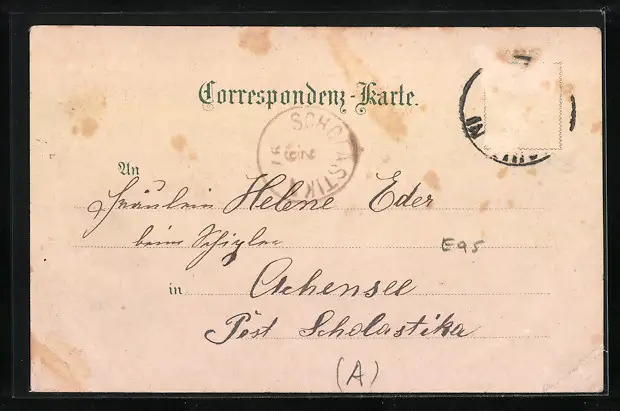 Correspondenz-Karte.
SCHOLASTIKA
An
Fräulein Helene Eder
beim
in Achensee
Post Scholastika
E95
(A)